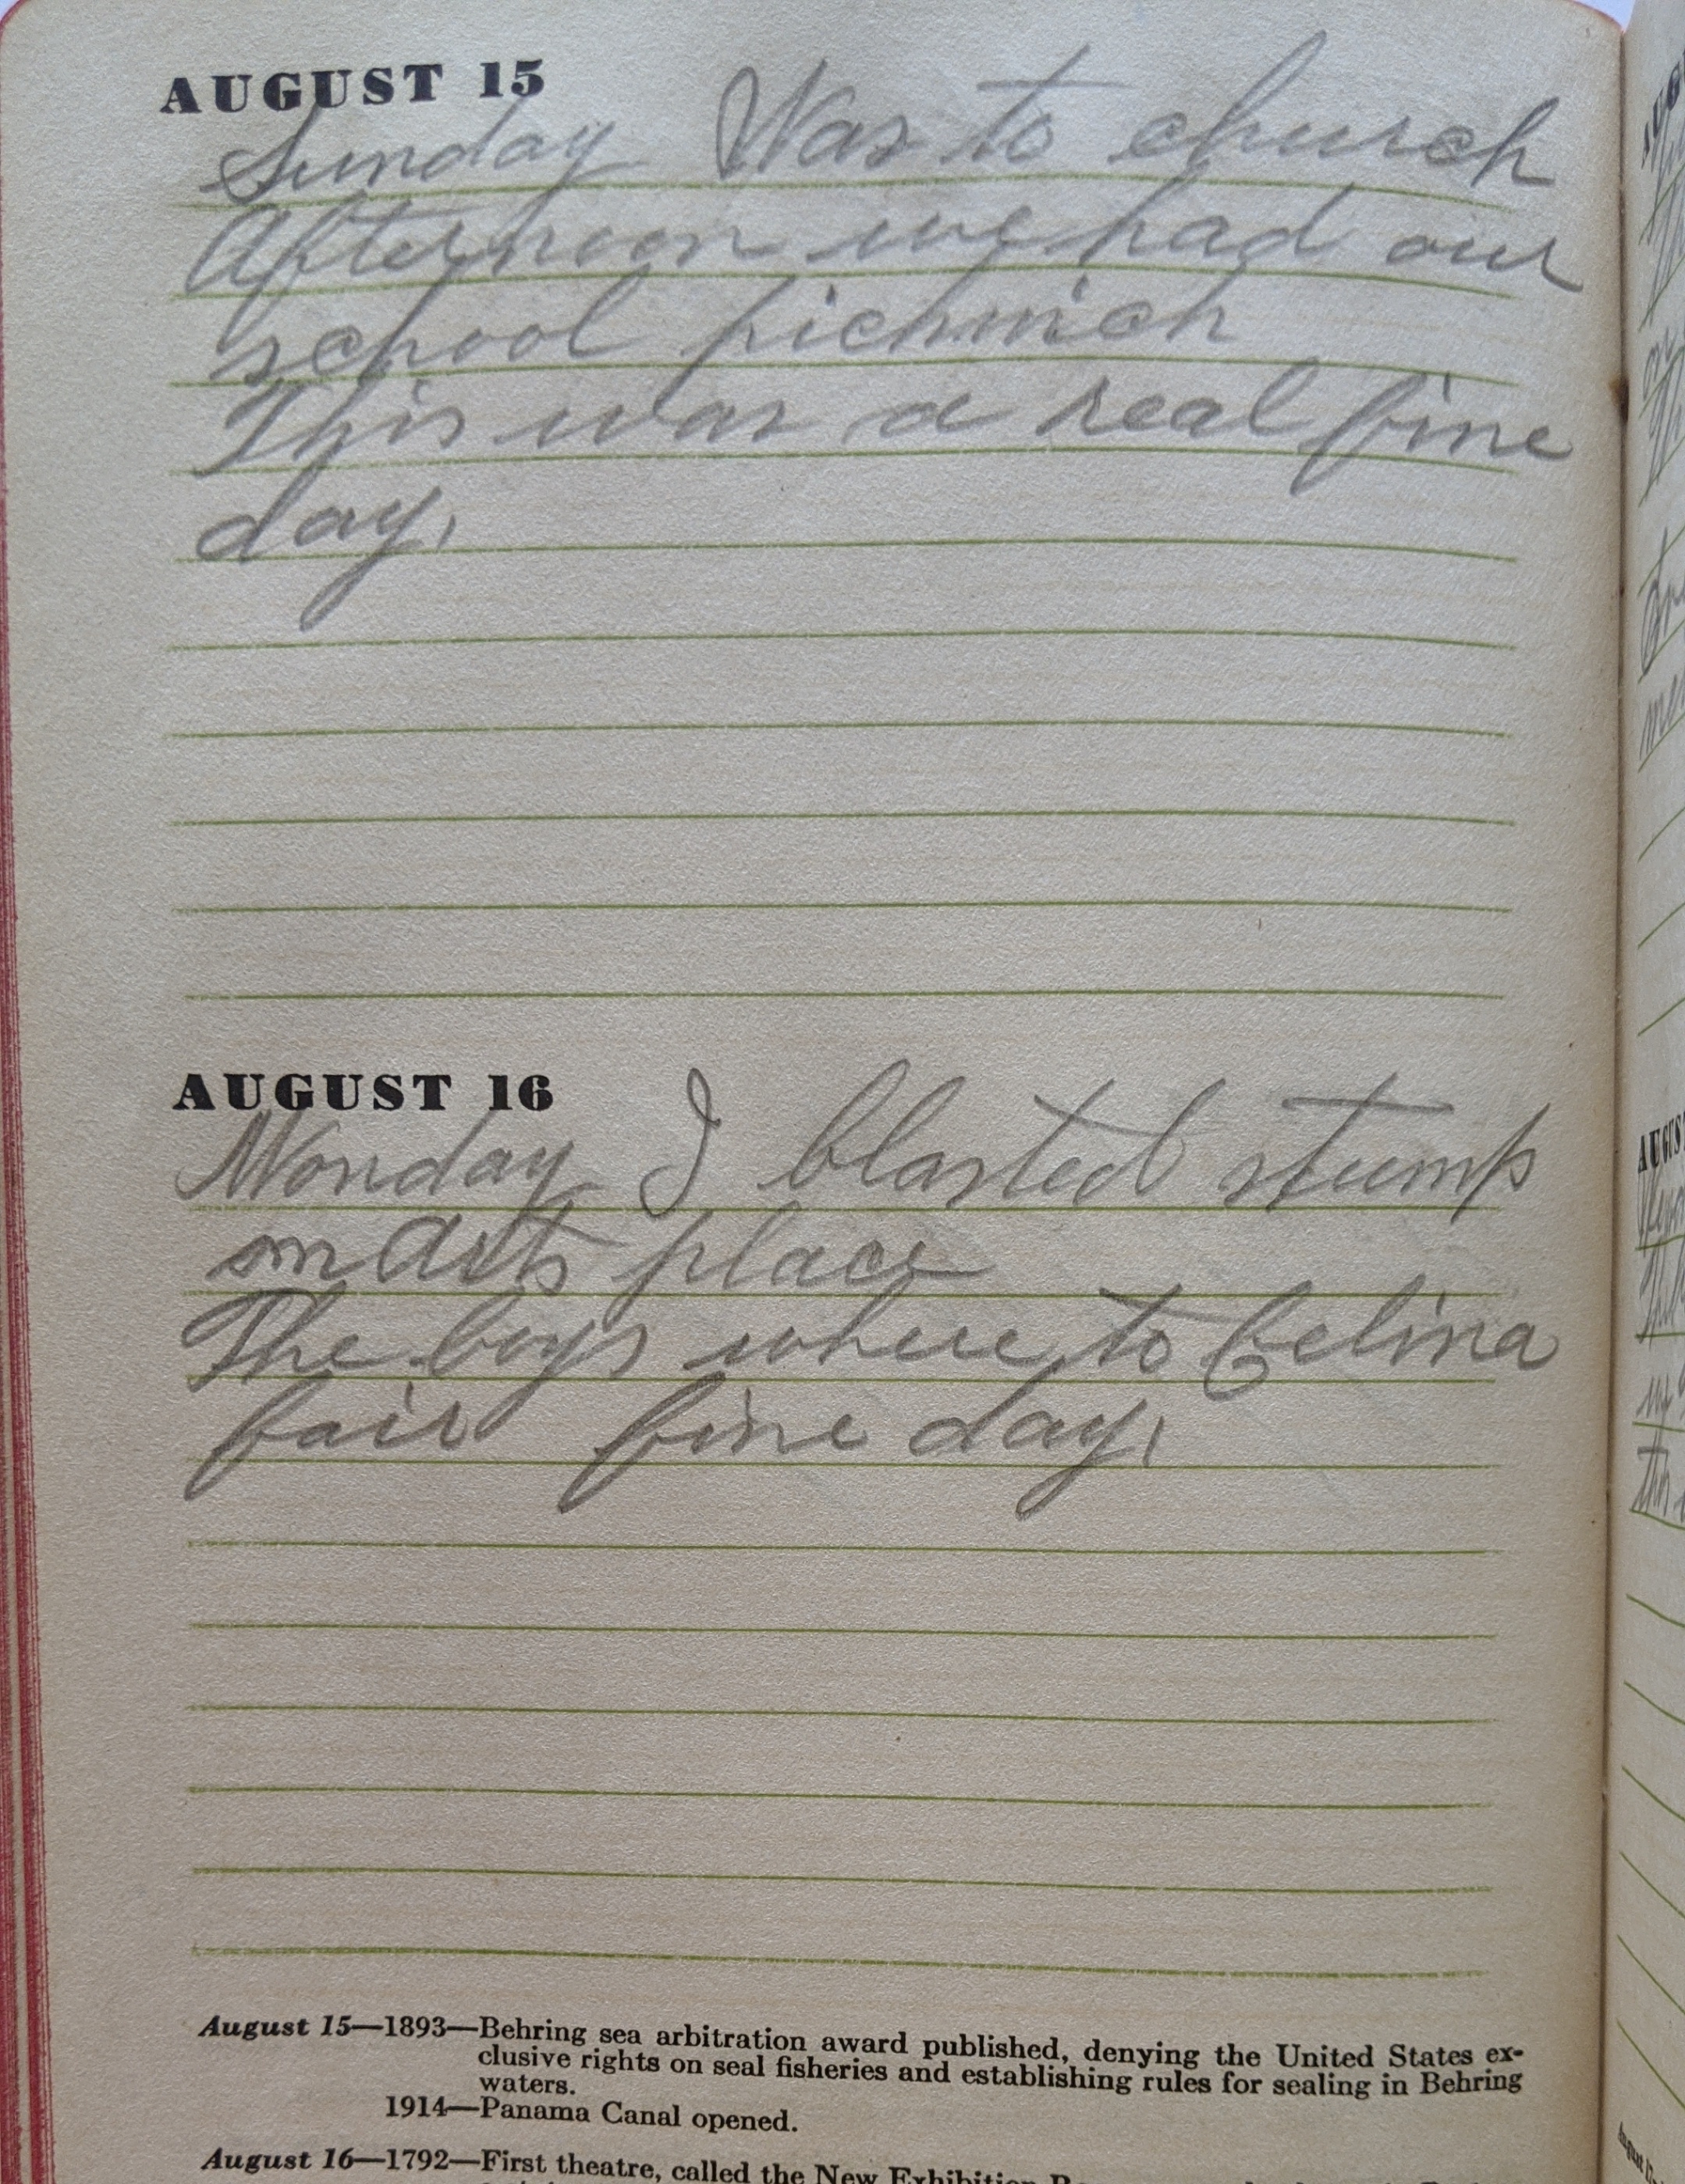 AUGUST 15
Sunday Was to church
Afternoon we had our
school picknick
This was a real fine
day.
AUGUST 16
Monday I blasted stump
on Arts place
The boys where to Celina
fair fine day.
August 15—1893—Behring sea arbitration award published, denying the United States ex-
clusive rights on seal fisheries and establishing rules for sealing in Behring
waters.
1914—Panama Canal opened.
August 16—1792—First theatre, called the New Exhibition